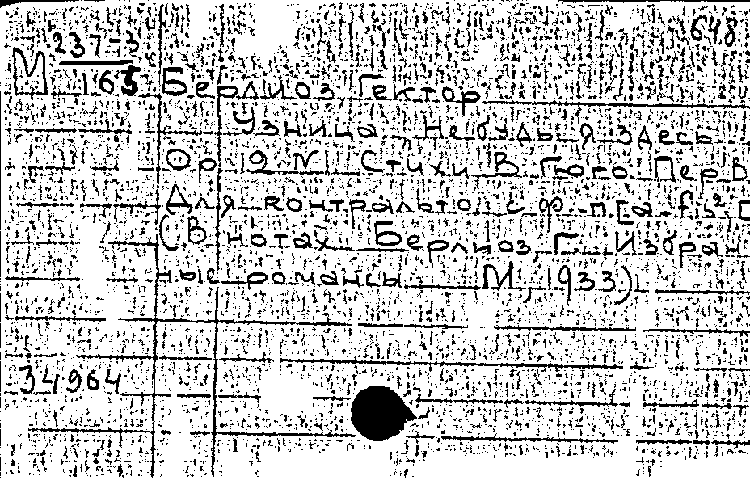 648
М 237-3
163
Берлиоз Гектор
Узница „Не будь я здесь
Ор. 9 N Стихи В. Гюго. Пер. В
Для контральто с ф.-п. [a-fis²
(В нотах: Берлиоз, Г. Избран-
ные романсы. М, 1933)
34964